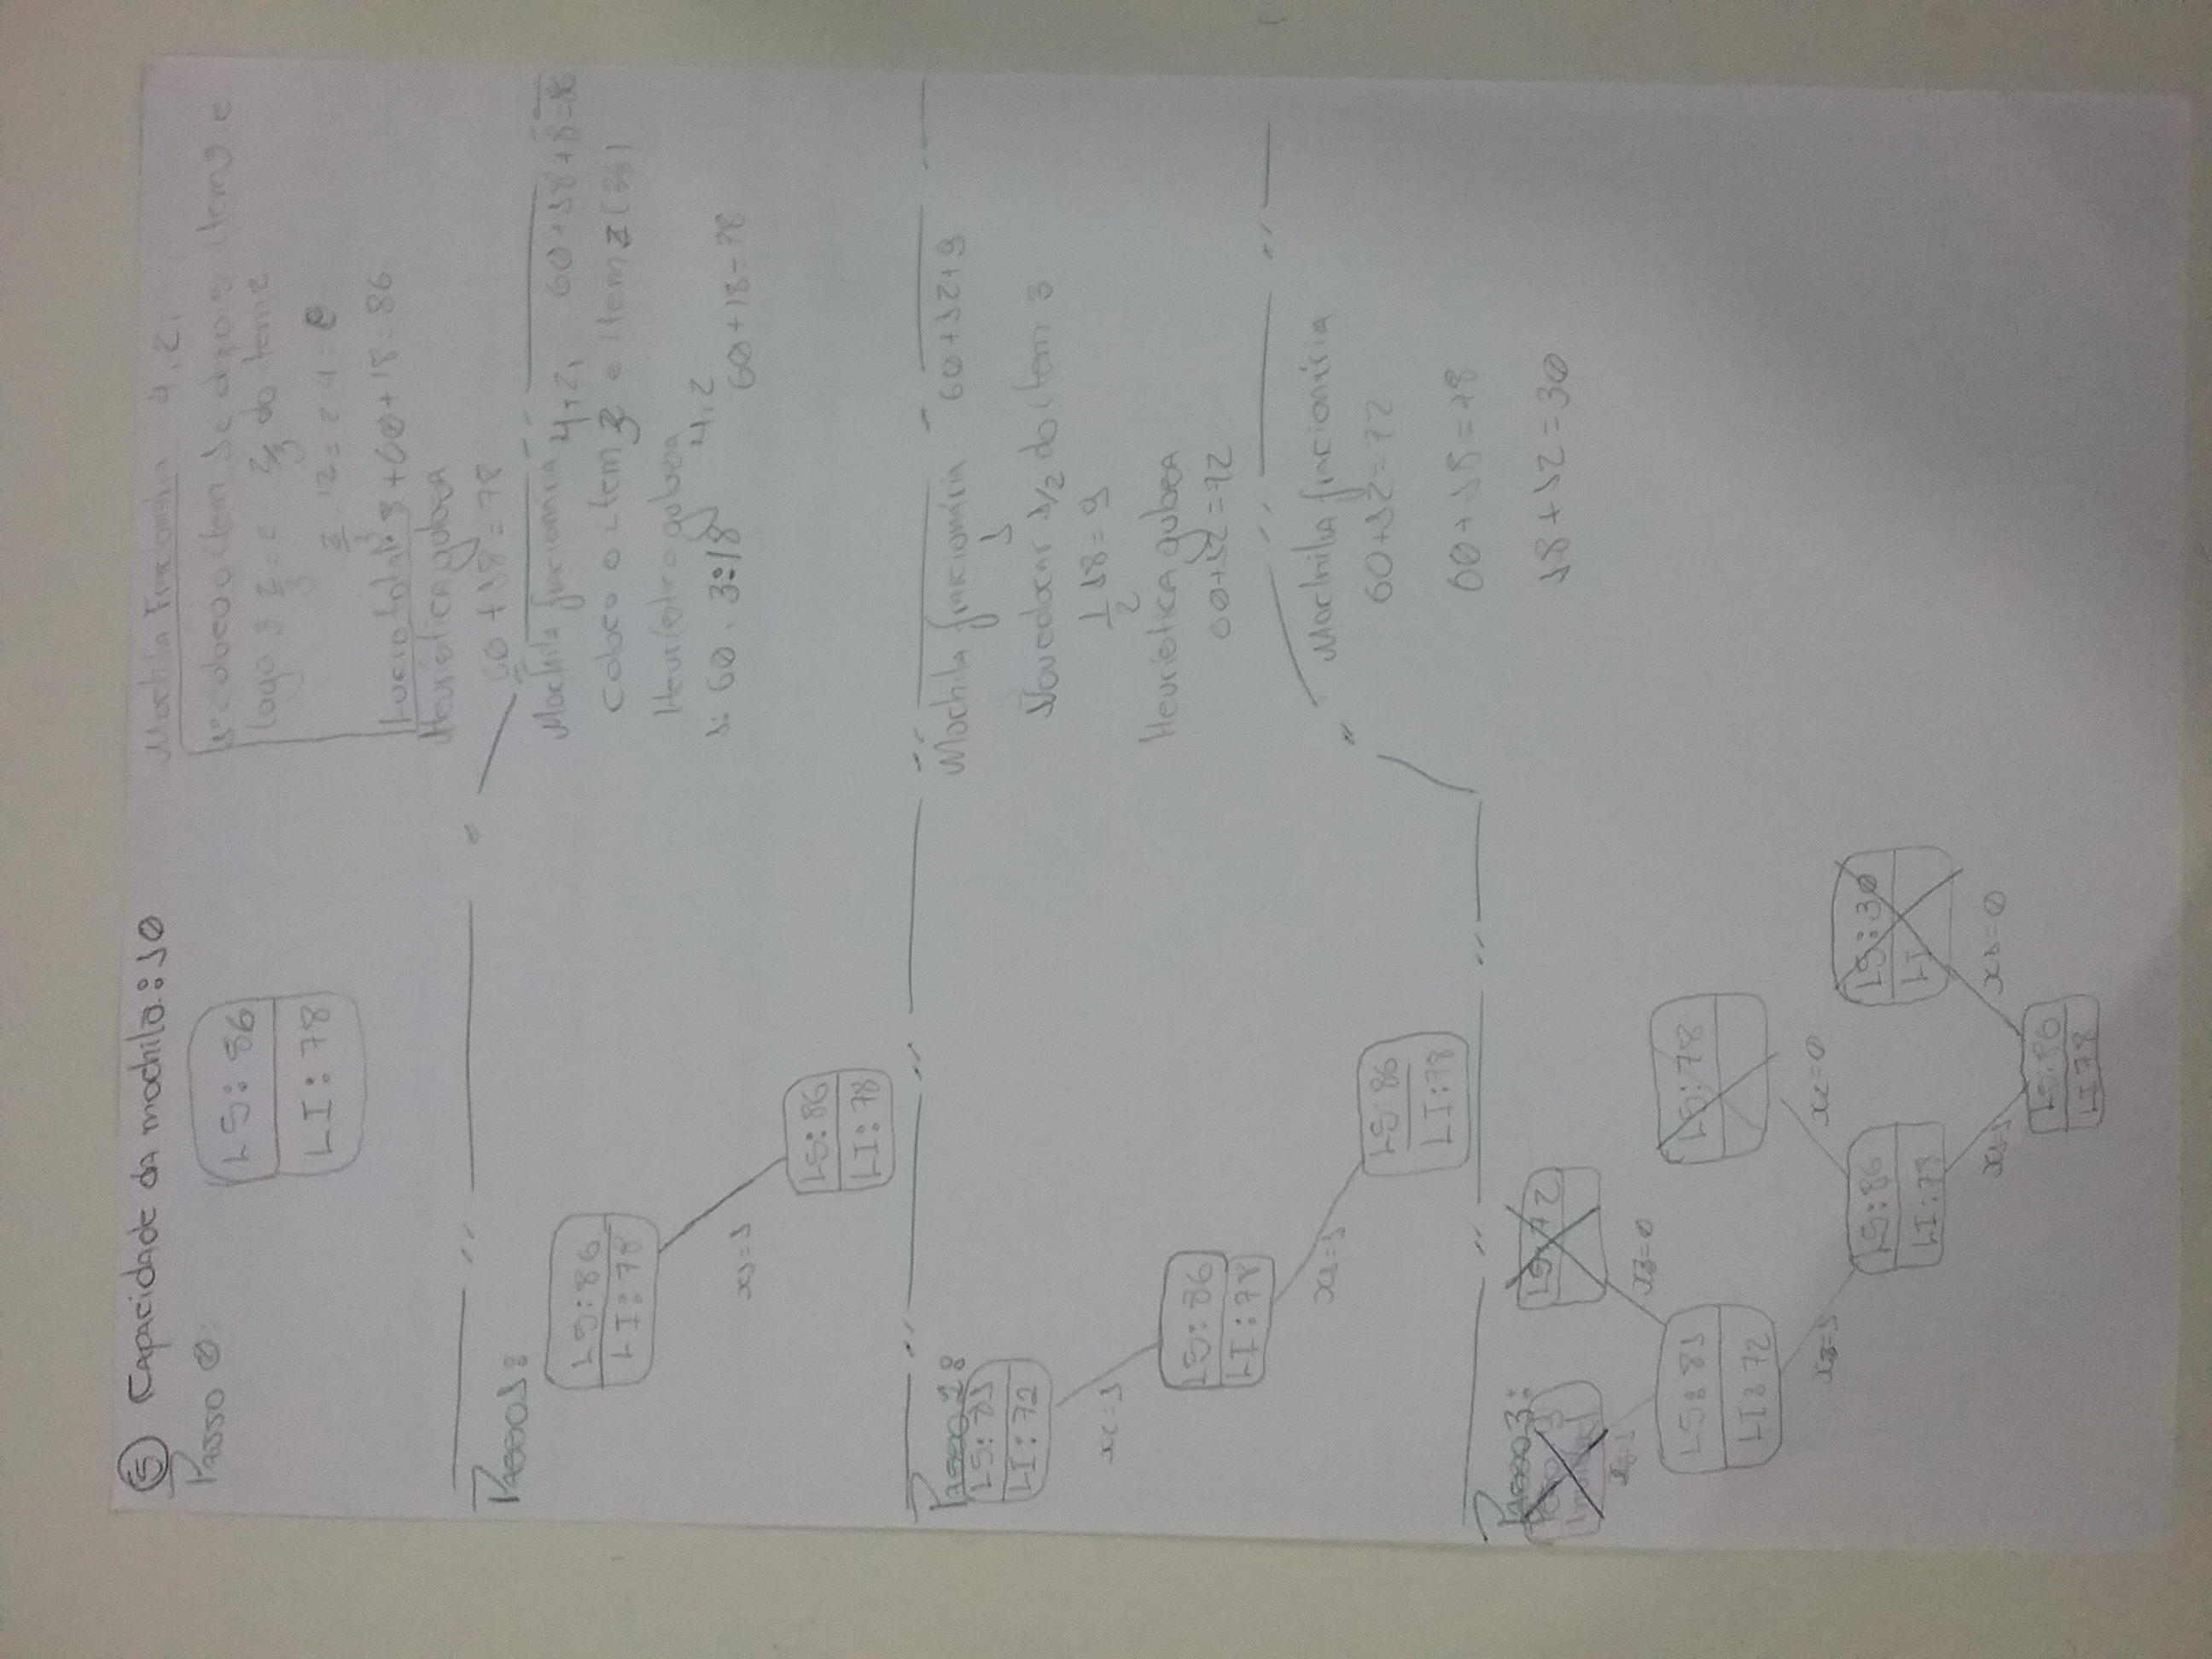 5 Capacidade da mochila: 10
Passo 0:
LS: 86
LI: 78
Mochila Fracionária 4, 2,
1º coloco o item 1 e depois item 3 e
logo 3 2/3 = 2/3 do item 2
2/3 12 = 24 8
Lucro total: 8 + 60 + 18 = 86
Heurística gulosa
60 + 18 = 78
Passo 1:
LS: 86
LI: 78
x1 = 1
LS: 86
LI: 78
Mochila fracionária 4, 2, 60 + 18 + 8 = 86
coloco o item 3 e item 2
Heurística gulosa
4, 2
1: 60. 3: 18
60 + 18 = 78
Passo 2:
LS: 81
LI: 72
x2 = 1
LS: 86
LI: 78
x1 = 1
LS: 86
LI: 78
Mochila fracionária 60 + 12 + 9
1
Vou colocar 1/2 do item 3
1/2 18 = 9
Heurística gulosa
60 + 12 = 72
Mochnilia fracionária
60 + 12 = 72
60 + 18 = 78
18 + 12 = 30
Passo 3:
LS: 72
x3 = 1
x3 = 0
LS: 81
LI: 72
LS: 78
x2 = 0
LS: 86
LI: 78
LS: 30
LI
x1 = 1
x1 = 0
LS: 86
LI 78